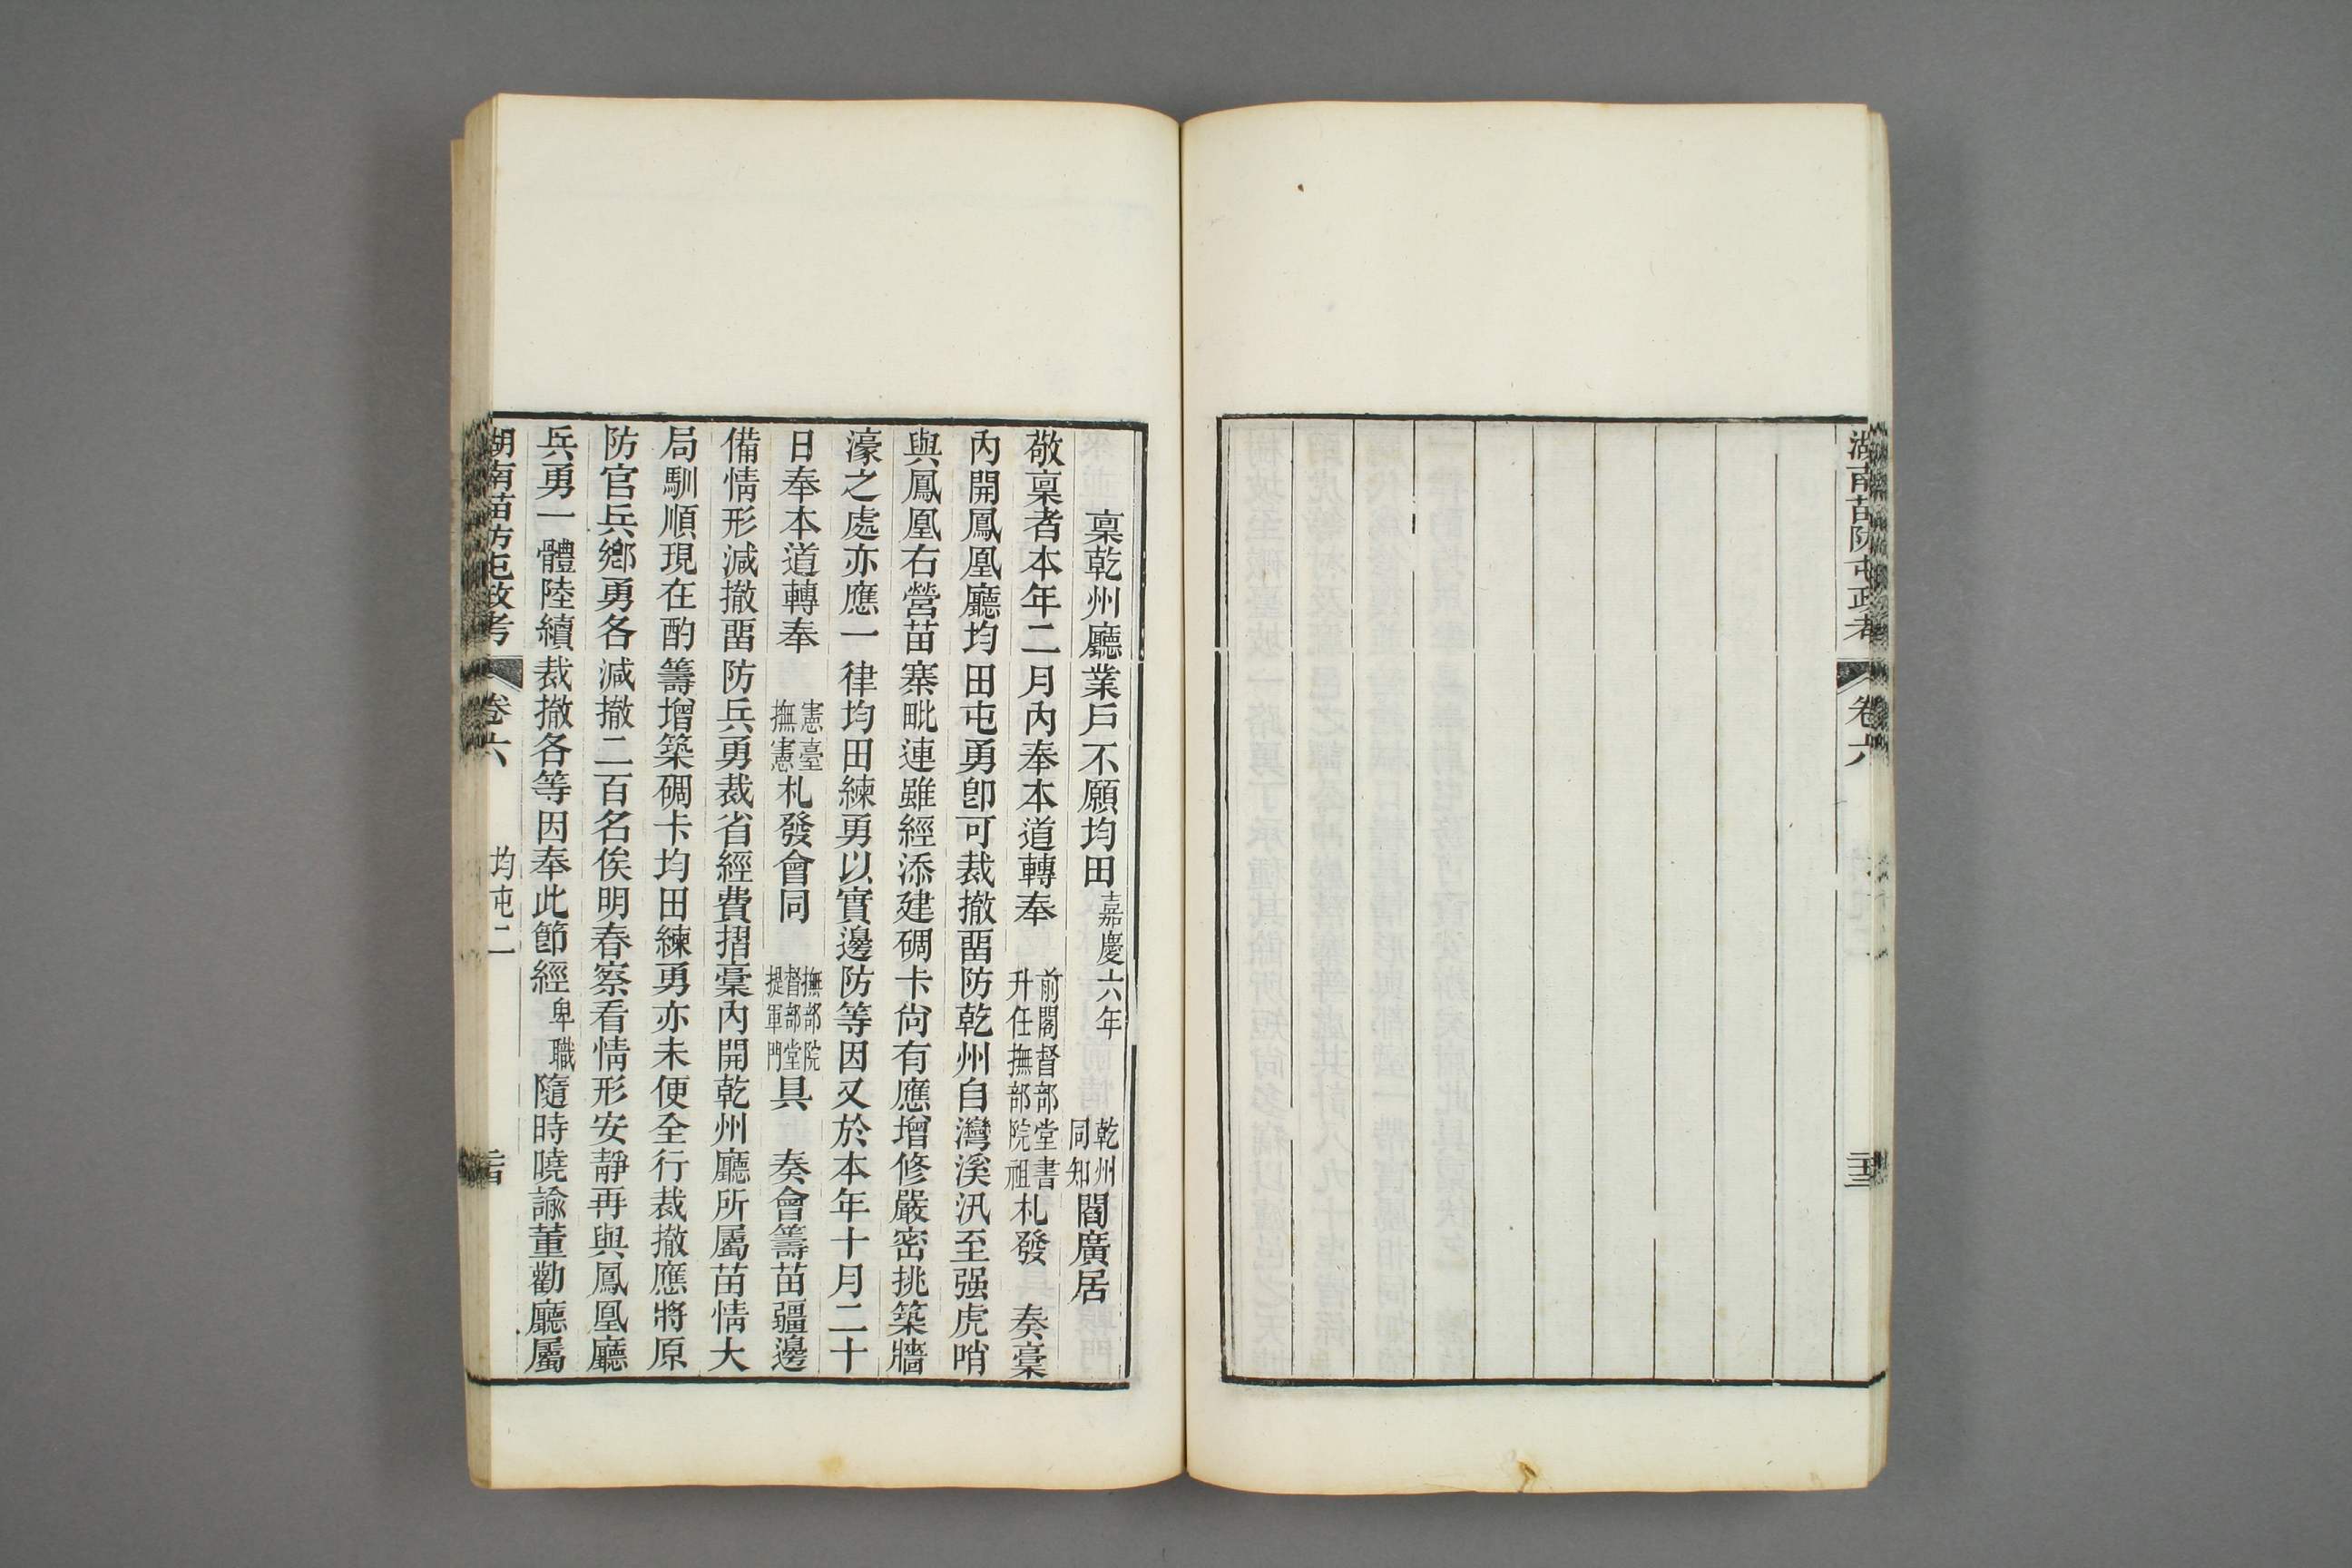 湖南苗防屯政考 卷六 二十三
稟乾州廳業戶不願均田 嘉慶六年 乾州同知 閻廣居
敬稟者本年二月內奉本道轉奉 前閣督部堂書 升任撫部院祖 札發 奏稾
內開鳳凰廳均田屯勇卽可裁撤畱防乾州自灣溪汛至强虎哨
與鳳凰右營苗寨毗連雖經添建碉卡尙有應增修嚴密挑築牆
濠之處亦應一律均田練勇以實邊防等因又於本年十月二十
日奉本道轉奉 憲臺 撫憲 札發會同 撫部院 督部堂 提軍門 具 奏會籌苗疆邊
備情形減撤畱防兵勇裁省經費摺稾內開乾州廳所屬苗情大
局馴順現在酌籌增築碉卡均田練勇亦未便全行裁撤應將原
防官兵鄉勇各減撤二百名俟明春察看情形安靜再與鳳凰廳
兵勇一體陸續裁撤各等因奉此節經卑職隨時曉諭董勸廳屬
湖南苗防屯政考 卷六 均屯二